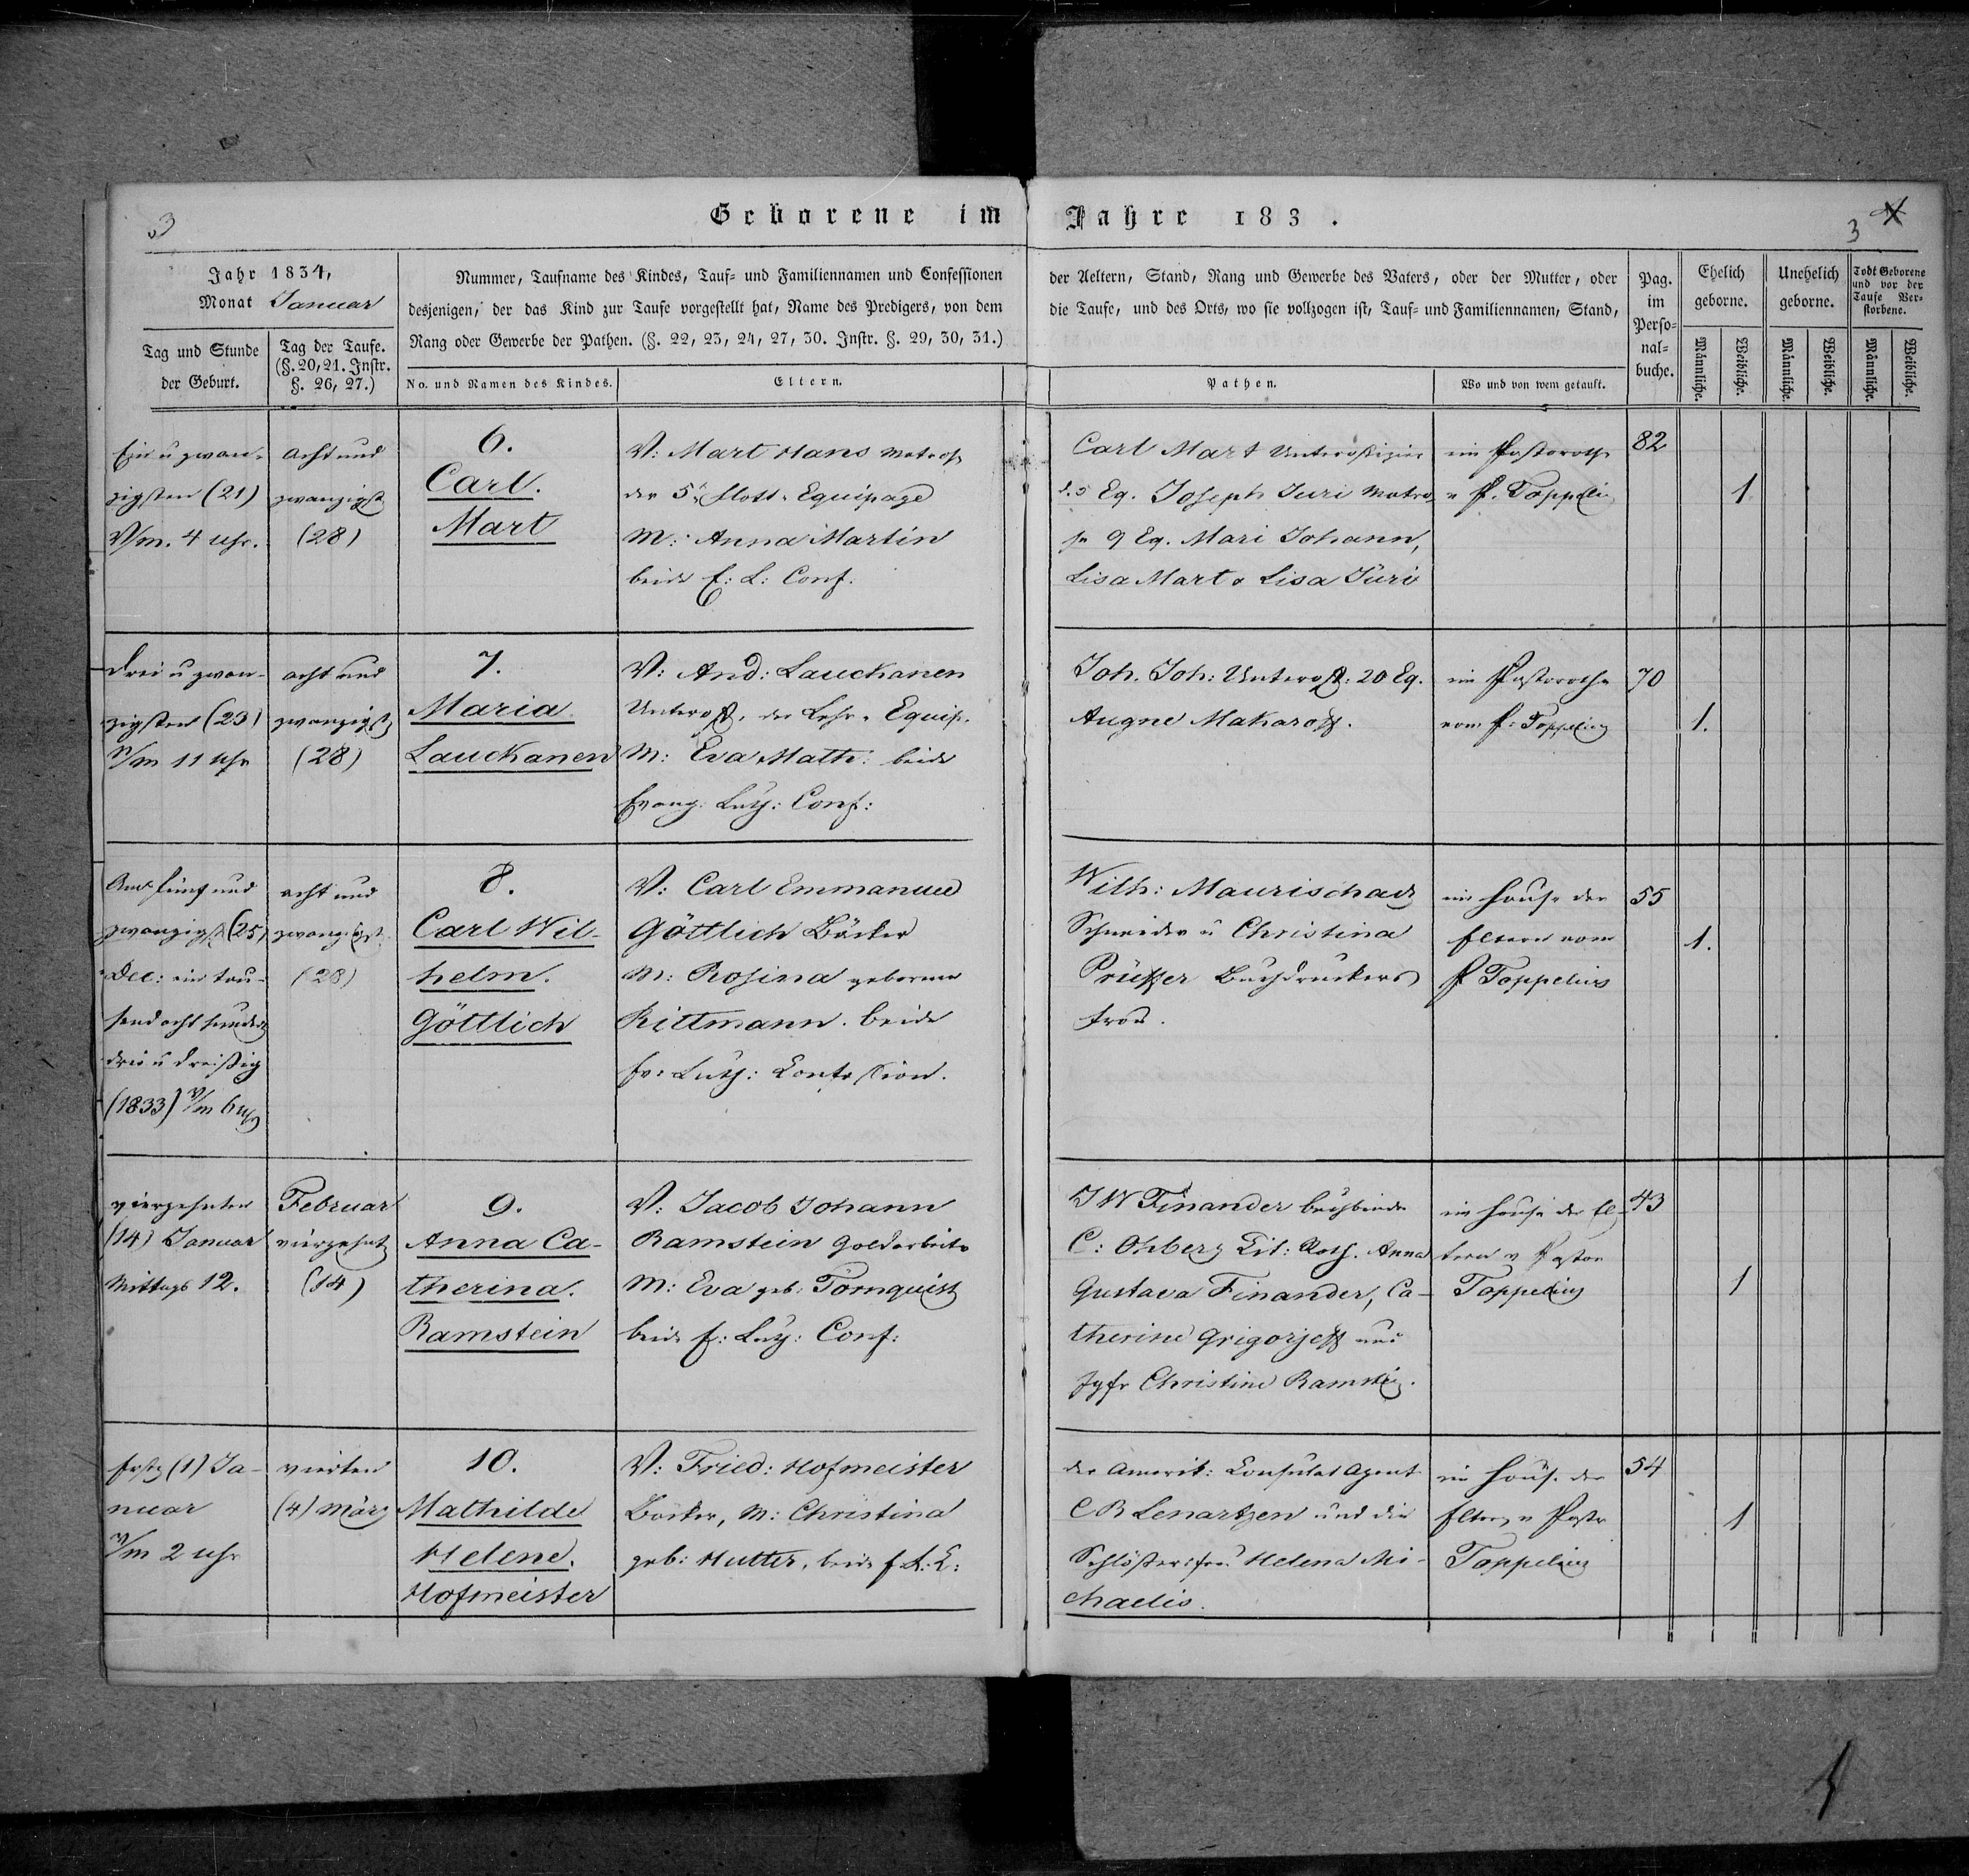 3
Geborene im Jahre 183 .
3
Jahr 1834,
Monat Januar
Tag und Stunde der Geburt.
Tag der Taufe. (§. 20, 21. Instr. §. 26, 27.)
Nummer, Taufname des Kindes, Tauf= und Familiennamen und Confessionen der Aeltern, Stand, Rang und Gewerbe des Vaters, oder der Mutter, oder
desjenigen, der das Kind zur Taufe vorgestellt hat, Name des Predigers, von dem die Taufe, und des Orts, wo sie vollzogen ist, Tauf= und Familiennamen, Stand,
Rang oder Gewerbe der Pathen. (§. 22, 23, 24, 27, 30. Instr. §. 29, 30, 31.)
No. und Namen des Kindes.
Eltern.
Pathen.
Wo und von wem getauft.
Pag. im Perso= nal= buche.
Ehelich geborne.
Unehelich geborne.
Todt Geborene und vor der Taufe Ver= storbene.
Männliche.
Weibliche.
Männliche.
Weibliche.
Männliche.
Weibliche.
Ein u zwan-
zigsten (21)
V/m. 4 Uhr.
acht und
zwanzigst
(28)
6.
Carl.
Mart
V: Mart Hans Matrose
der 5 Flott-Equipage
M: Anna Martin
beide E: L: Conf.
Carl Mart Unteroffizier
d. 5 Eq. Joseph Juri Matro
se 9 Eq. Mari Johann,
Lisa Mart u Lisa Juri
im Pastorathe
v P. Toppelius
82
1
Drei u zwan-
zigsten (23)
V/m 11 Uhr
acht und
zwanzigst
(28)
7.
Maria
Lauckanen
V: And: Lauckanen
Unteroff. der Lehr-Equip.
M: Eva Math: beide
Evang. Luth: Conf:
Joh. Joh: Unteroff: 20 Eq.
Augne Makaroff.
im Pastorathe
vom P: Toppelius
70
1.
Am fünf und
zwanzigst (25)
Dec: ein tau-
send acht hundert
drei u dreißig
(1833) V/m 6 Uhr
acht und
zwanzigst
(28)
8.
Carl Wil-
helm.
Göttlich
V: Carl Emmanuel
Göttlich Bäcker
M: Rosina geborene
Rittmann. beide
Ev: Luth: Confession.
Wilh: Maurischat
Schneider u Christina
Prüffer Buchdruckers
frau.
im Hause der
Eltern vom
P Toppelius
55
1.
vierzehnten
(14) Januar
Mittags 12.
Februar
vierzehnt
(14)
9.
Anna Ca-
therina.
Ramstein
V: Jacob Johann
Ramstein Goldarbeiter
M: Eva geb: Törnquist
beide E: Luth: Conf:
J W Finander Buchbinder
C: Ohberg Tit: Rath. Anna
Gustava Finander, Ca-
therine Grigorjeff und
Jgfr Christine Ramstein.
im Hause der El-
tern v Pastor
Toppelius
43
1
Erste (1) Ja-
nuar
V/m 2 Uhr
vierten
(4) März
10.
Mathilde
Helene.
Hofmeister
V: Fried: Hofmeister
Bäcker, M: Christina
geb: Hutter, beide E. L. C:
der Amerik: Consulat Agent
C B Lenartzen und die
Schlösser frau Helena Mi-
chaelis.
im Hause der
Eltern v Pastor
Toppelius
54
1